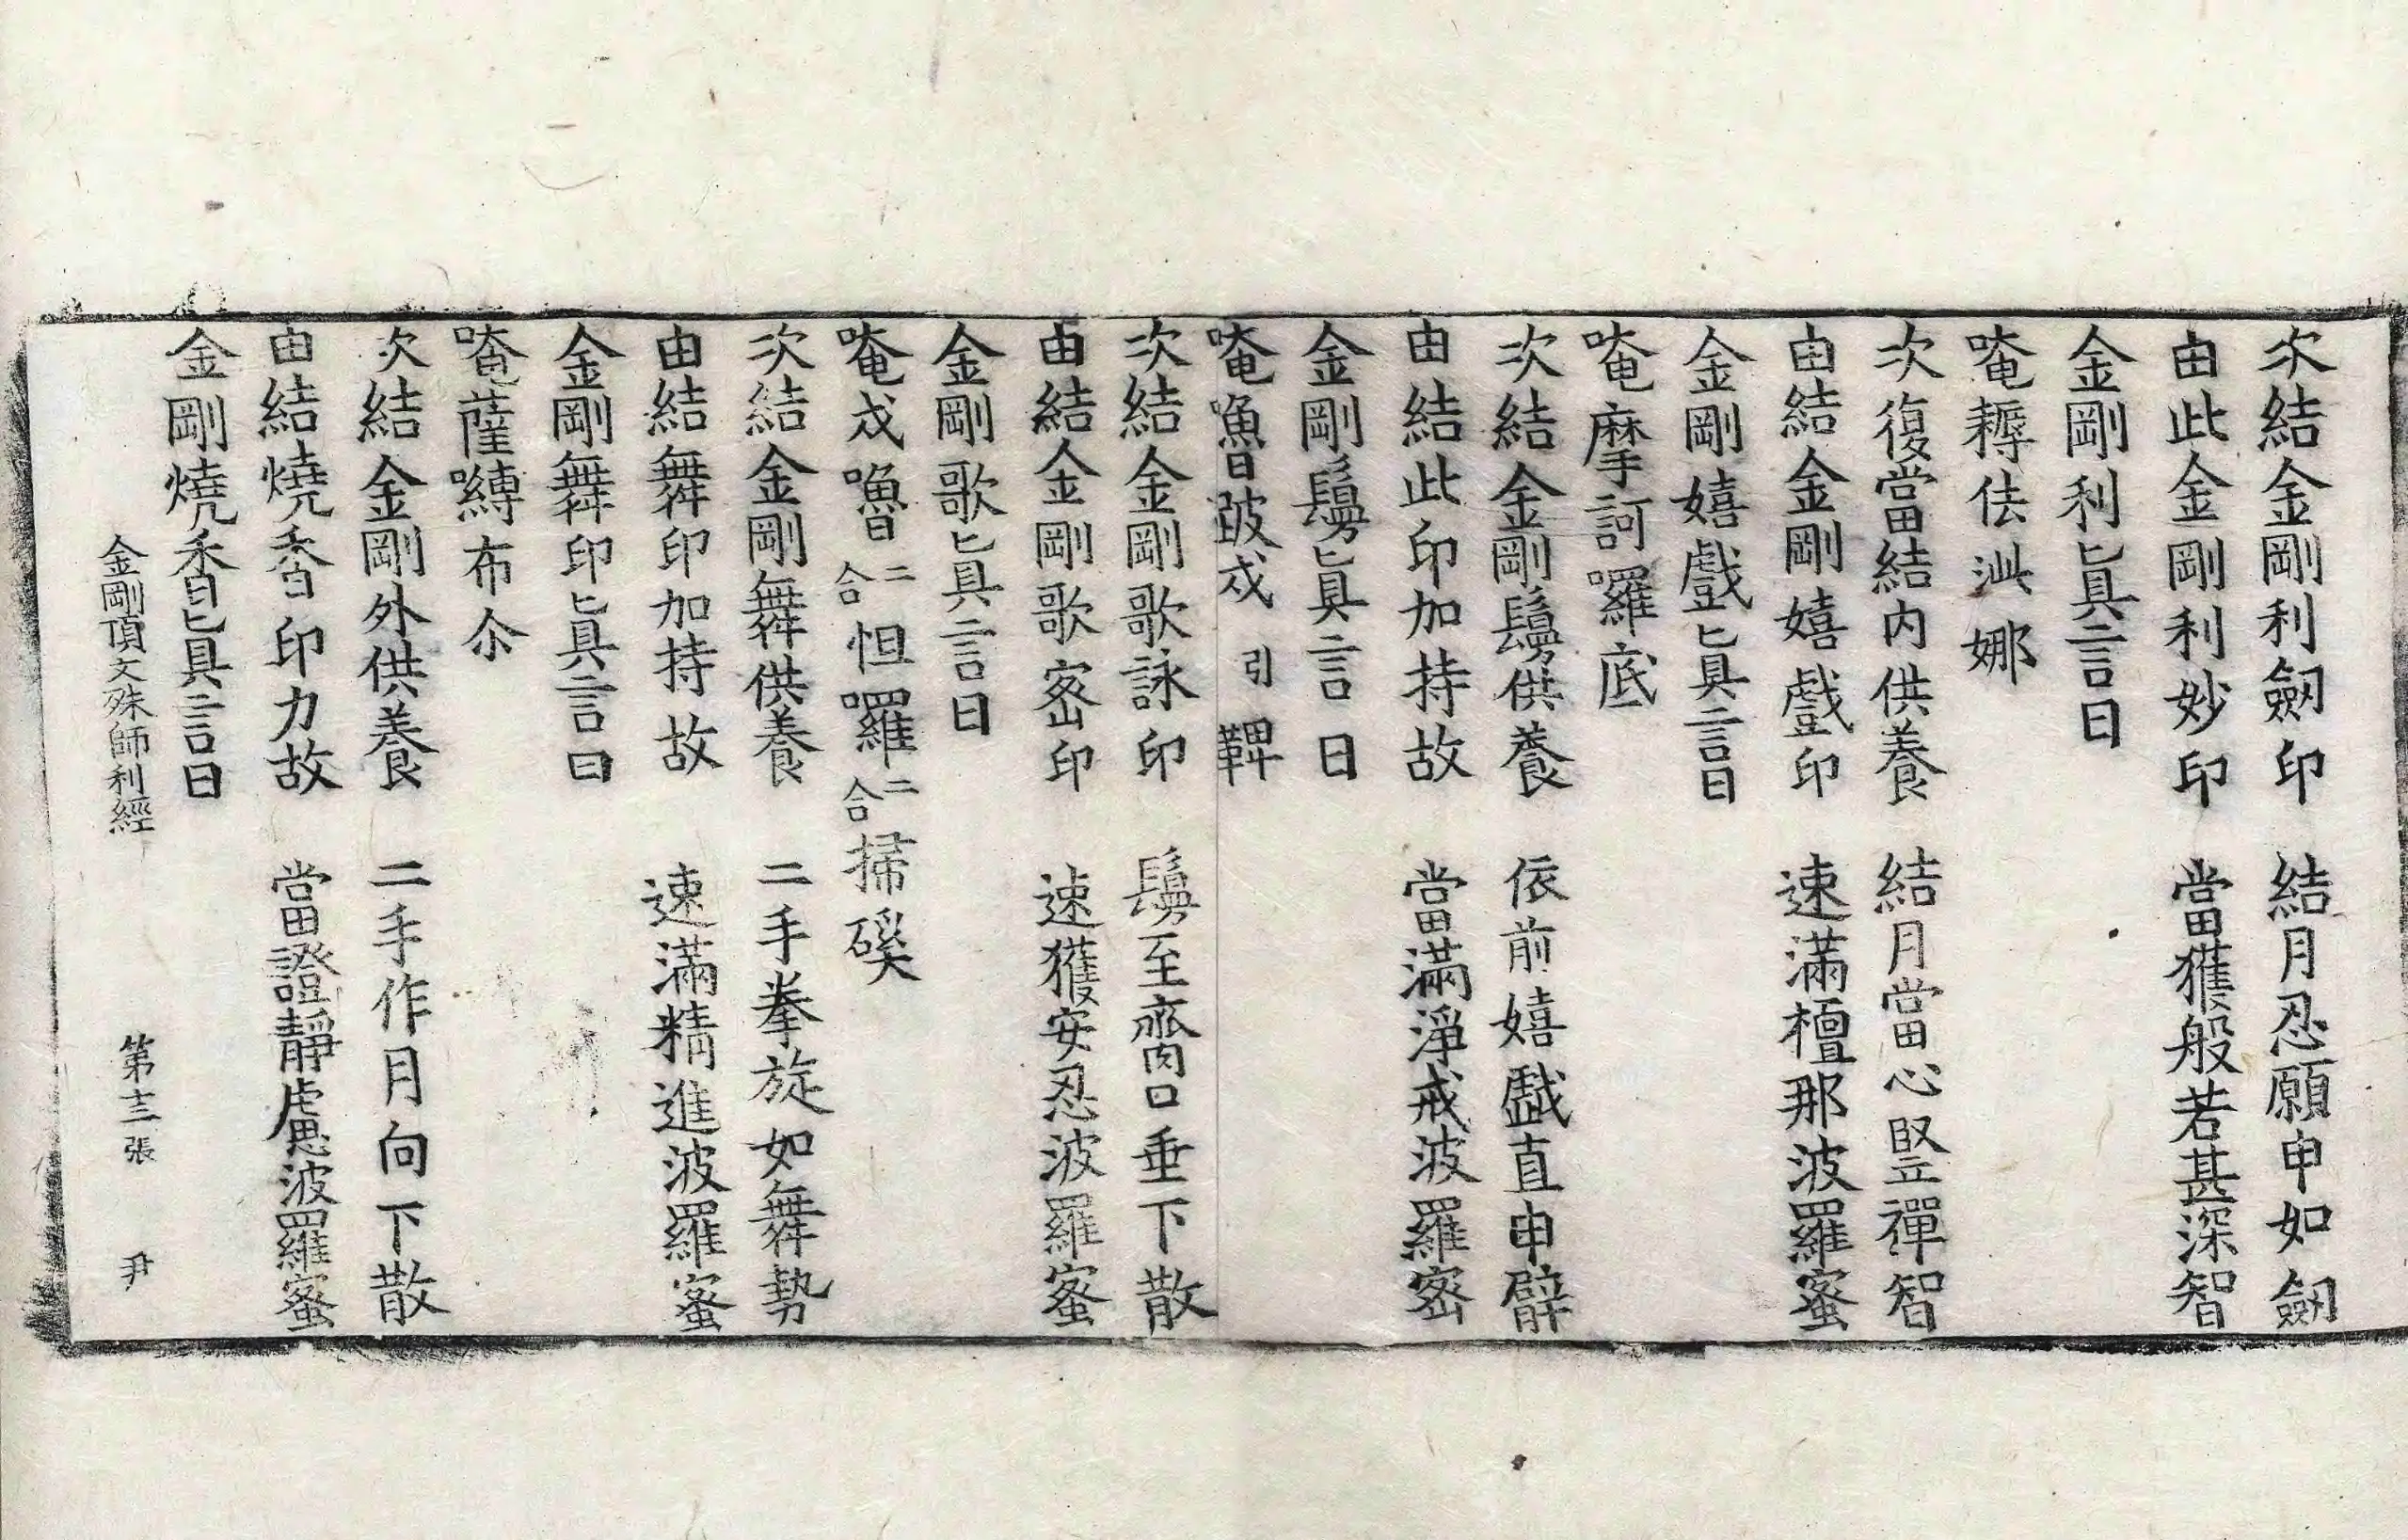 次結金剛利劒印　結月忍願申如劒
由此金剛利妙印　當獲般若甚深智
金剛利眞言曰
唵耨佉泚娜
次復當結内供養　結月當心竪禪智
由結金剛嬉戲印　速滿檀那波羅蜜
金剛嬉戲眞言曰
唵摩訶囉底
次結金剛鬘供養　依前嬉戱直申臂
由結此印加持故　當滿淨戒波羅密
金剛鬘眞言曰
唵嚕跛戍引鞞
次結金剛歌詠印　鬘至齎口垂下散
由結金剛歌密印　速獲安忍波羅蜜
金剛歌眞言曰
唵戍嚕二合怛囉二合掃磎
次結金剛舞供養　二手拳旋如舞勢
由結舞印加持故　速滿精進波羅蜜
金剛舞印眞言曰
唵薩嚩布尒
次結金剛外供養　二手作月向下散
由結燒香印力故　當證靜慮波羅蜜
金剛燒香眞言曰
金剛頂文殊師利經　第十三張　尹